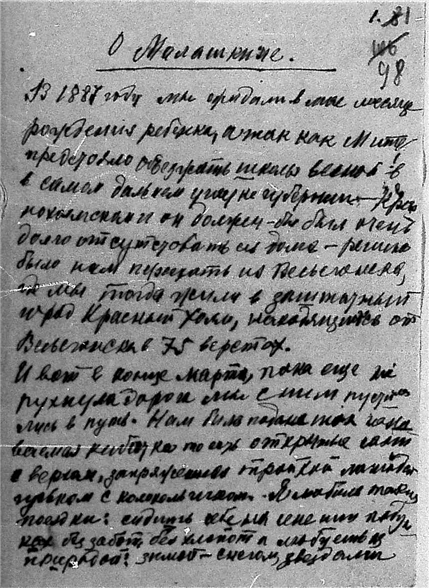 1. 81
98
О Молашкине.
В 1887 году мы ожидали в мае месяце
рождения ребенка, а так как Мите
предстояло объезжать школы весной
в самом дальнем углу губернии —
он должен был очень
долго отсутствовать из дома — решено
было нам переехать из Весьегонска,
где мы тогда жили в заштатный
город Красный Холм, находящийся от
Весьегонска в 75 верстах.
И вот в конце марта, пока еще не
рухнула дорога мы с ним пустились
в путь. Нам была подана так назы
ваемая кибитка то есть открытые сани
с верхом, запряженные тройкой лошадей
гуськом с колокольчиком. Я любила такие
поездки: сидишь себе на сене
как без забот без хлопот и любуешься
природой: зимой — снегом, звездами